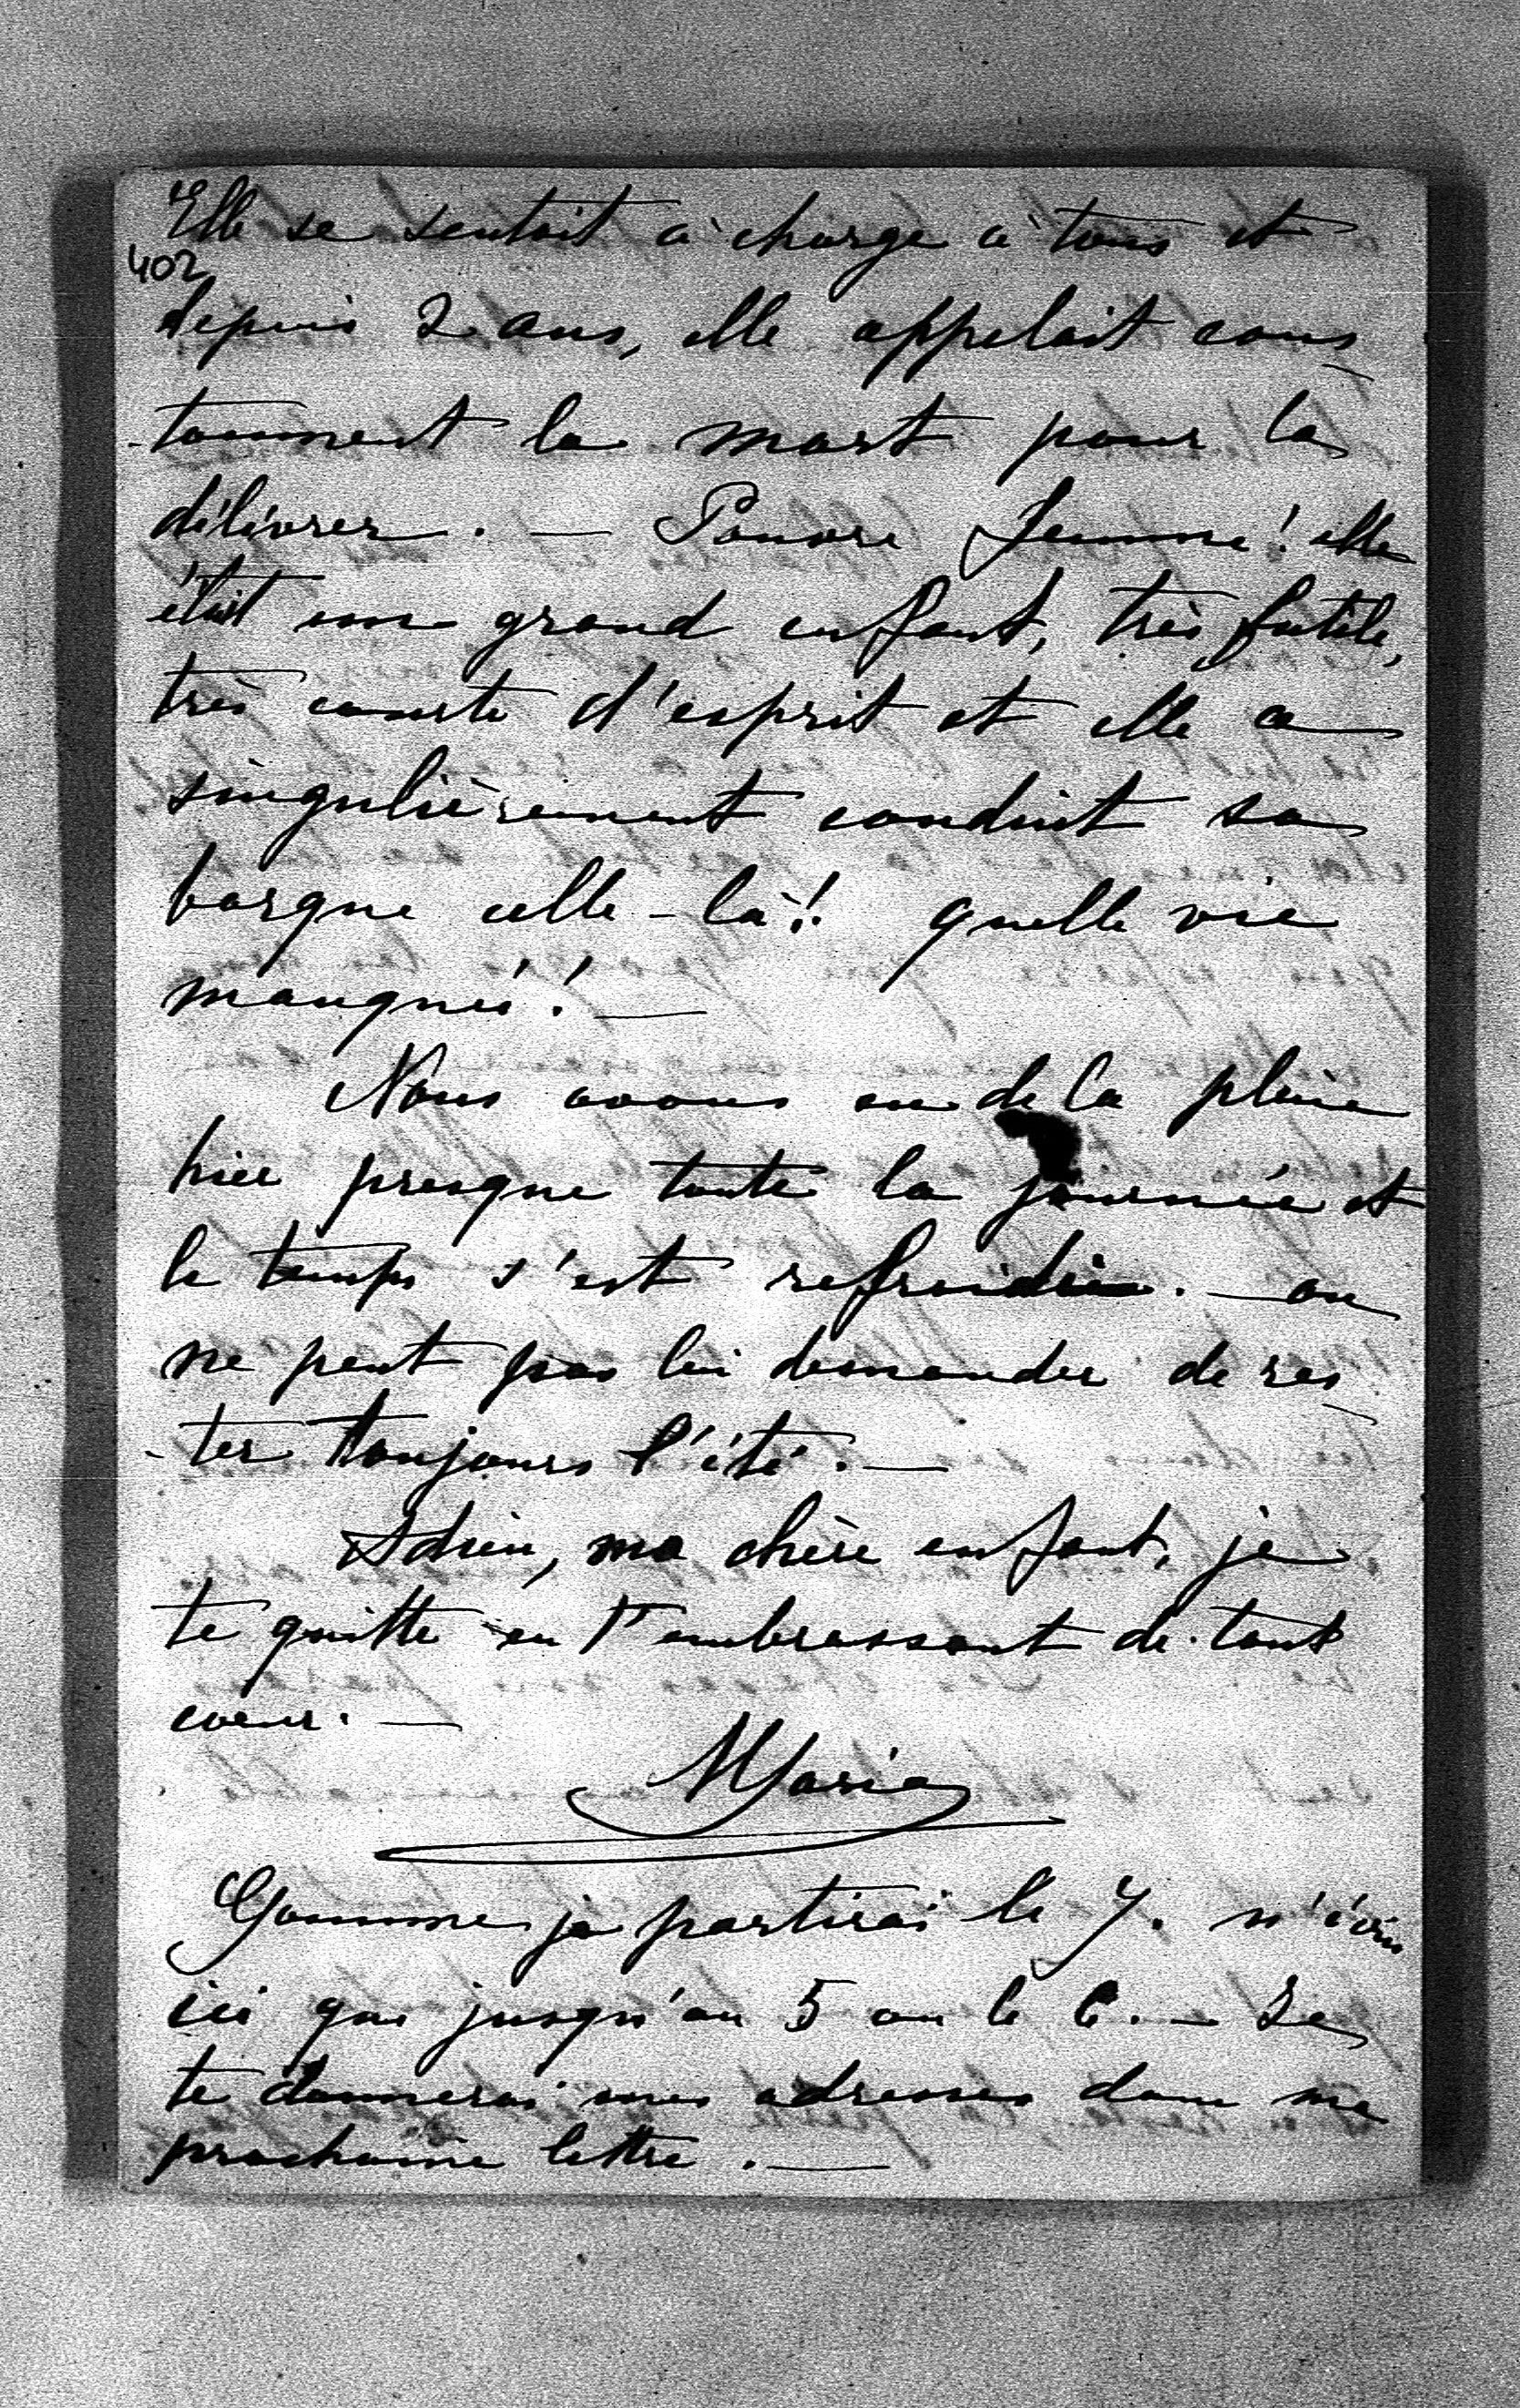 Elle se sentait à charge à tous et
402
depuis 2 ans, elle appelait cons
-tamment la mort pour la
délivrer. — Pauvre femme! elle
était un grand enfant, très futile,
très courte d'esprit et elle a
singulièrement conduit sa
barque celle-là! quelle vie
manquée! —
Nous avons eu de la pluie
hier presque toute la journée et
le temps s'est refroidi. — on
ne peut pas lui demander de res
-ter toujours l'été. —
Adieu, ma chère enfant, je
te quitte en t'embrassant de tout
coeur. —
Maria
Comme je partirai le 7. n'écris
ici que jusqu'au 5 ou le 6. — Je
te donnerai mes adresses dans ma
prochaine lettre. —